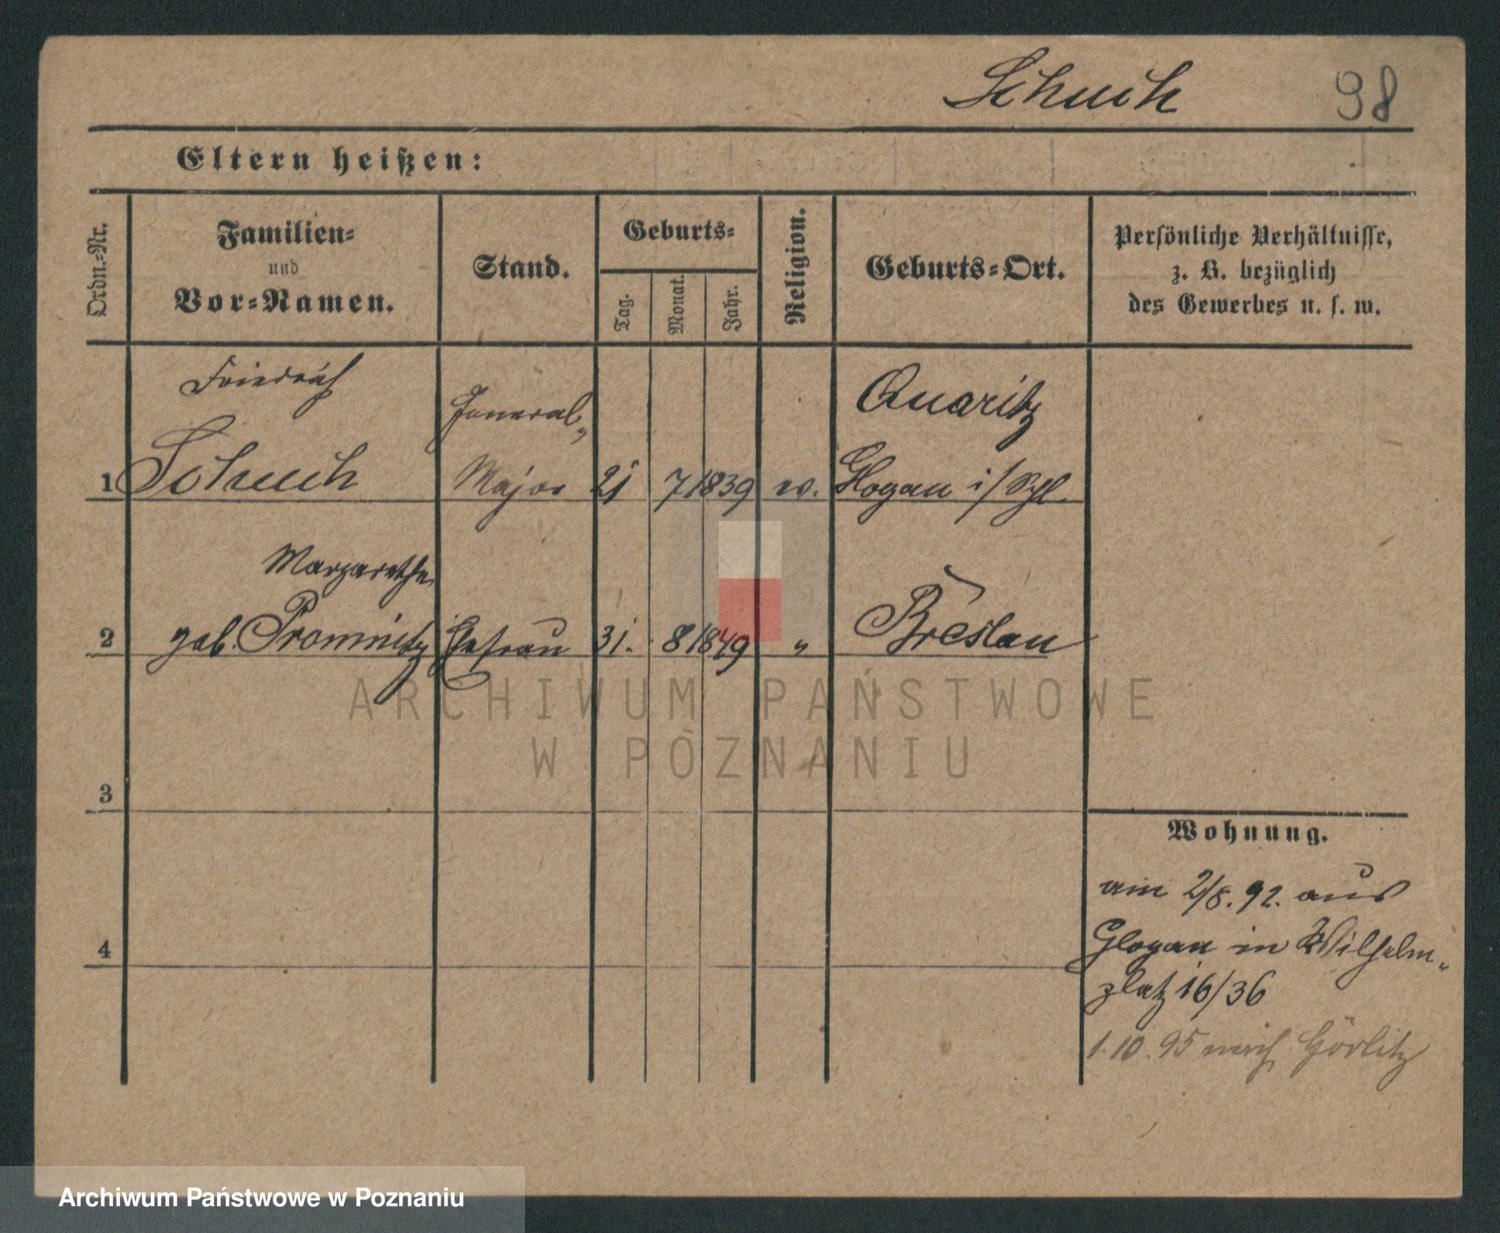 Schuch 98
Eltern heißen:
Ordn.-Nr.
Familien-
und
Vor-Namen.
Stand.
Geburts-
Tag.
Monat.
Jahr.
Religion.
Geburts-Ort.
Persönliche Verhältnisse,
z. B. bezüglich
des Gewerbes u. s. w.
Friedrich General- Quaritz
1 Schuch Major 21 7 1839 ev. Glogau i/Schl.
Margarethe
2 geb. Promnitz Ehefrau 31. 8 1849 " Breslau
ARCHIWUM PAŃSTWOWE
W POZNANIU
3
4
Wohnung.
am 2/8. 92. aus
Glogau in Wilhelm-
platz 16/36
1.10.95 nach Görlitz
Archiwum Państwowe w Poznaniu